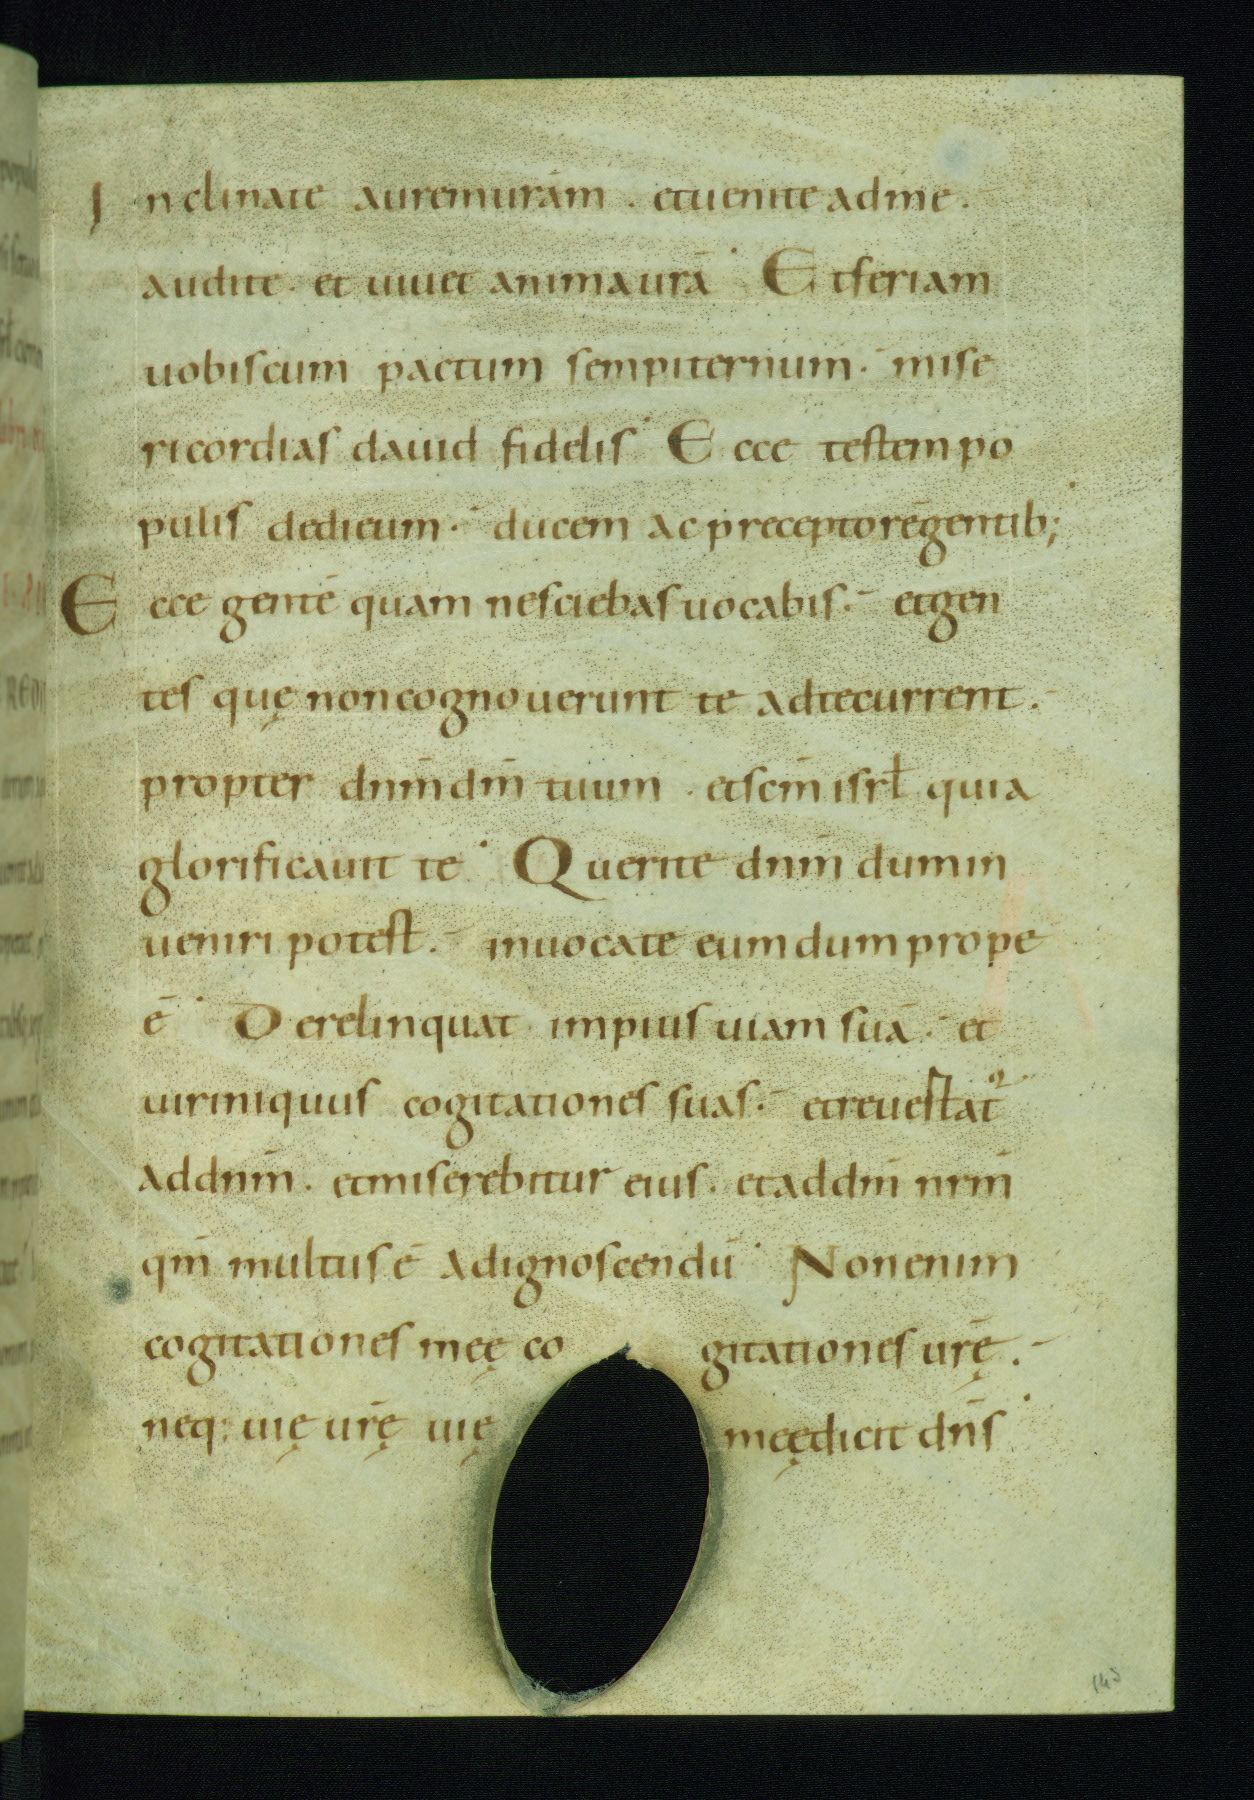 Inclinate aurem urā̄m . et uenite ad me .
audite . et uiuet anima urā̄ Et feriam
uobiscum pactum sempiternum . mise
ricordias dauid fidelis Ecce testem po
pulis dedi eum . ducem ac preceptorē gentib;
Ecce gentē quam nesciebas uocabis . et gen
tes quę non cognouerunt te ad te current .
propter dnm̄ dm̄ tuum . et scm̄ isrł quia
glorificauit te Querite dnm̄ dum in
ueniri potest . inuocate eum dum prope
ē Derelinquat impius uiam suā . et
uir iniquus cogitationes suas . et reuertat᷑
ad dnm̄ . et miserebitur eius . et ad dm̄ nrm̄
qm̄ multus ē ad ignoscendū Non enim
cogitationes meę cogitationes ur̄ę .
neq: uię ur̄ę uię meę dicit dn̄s
145